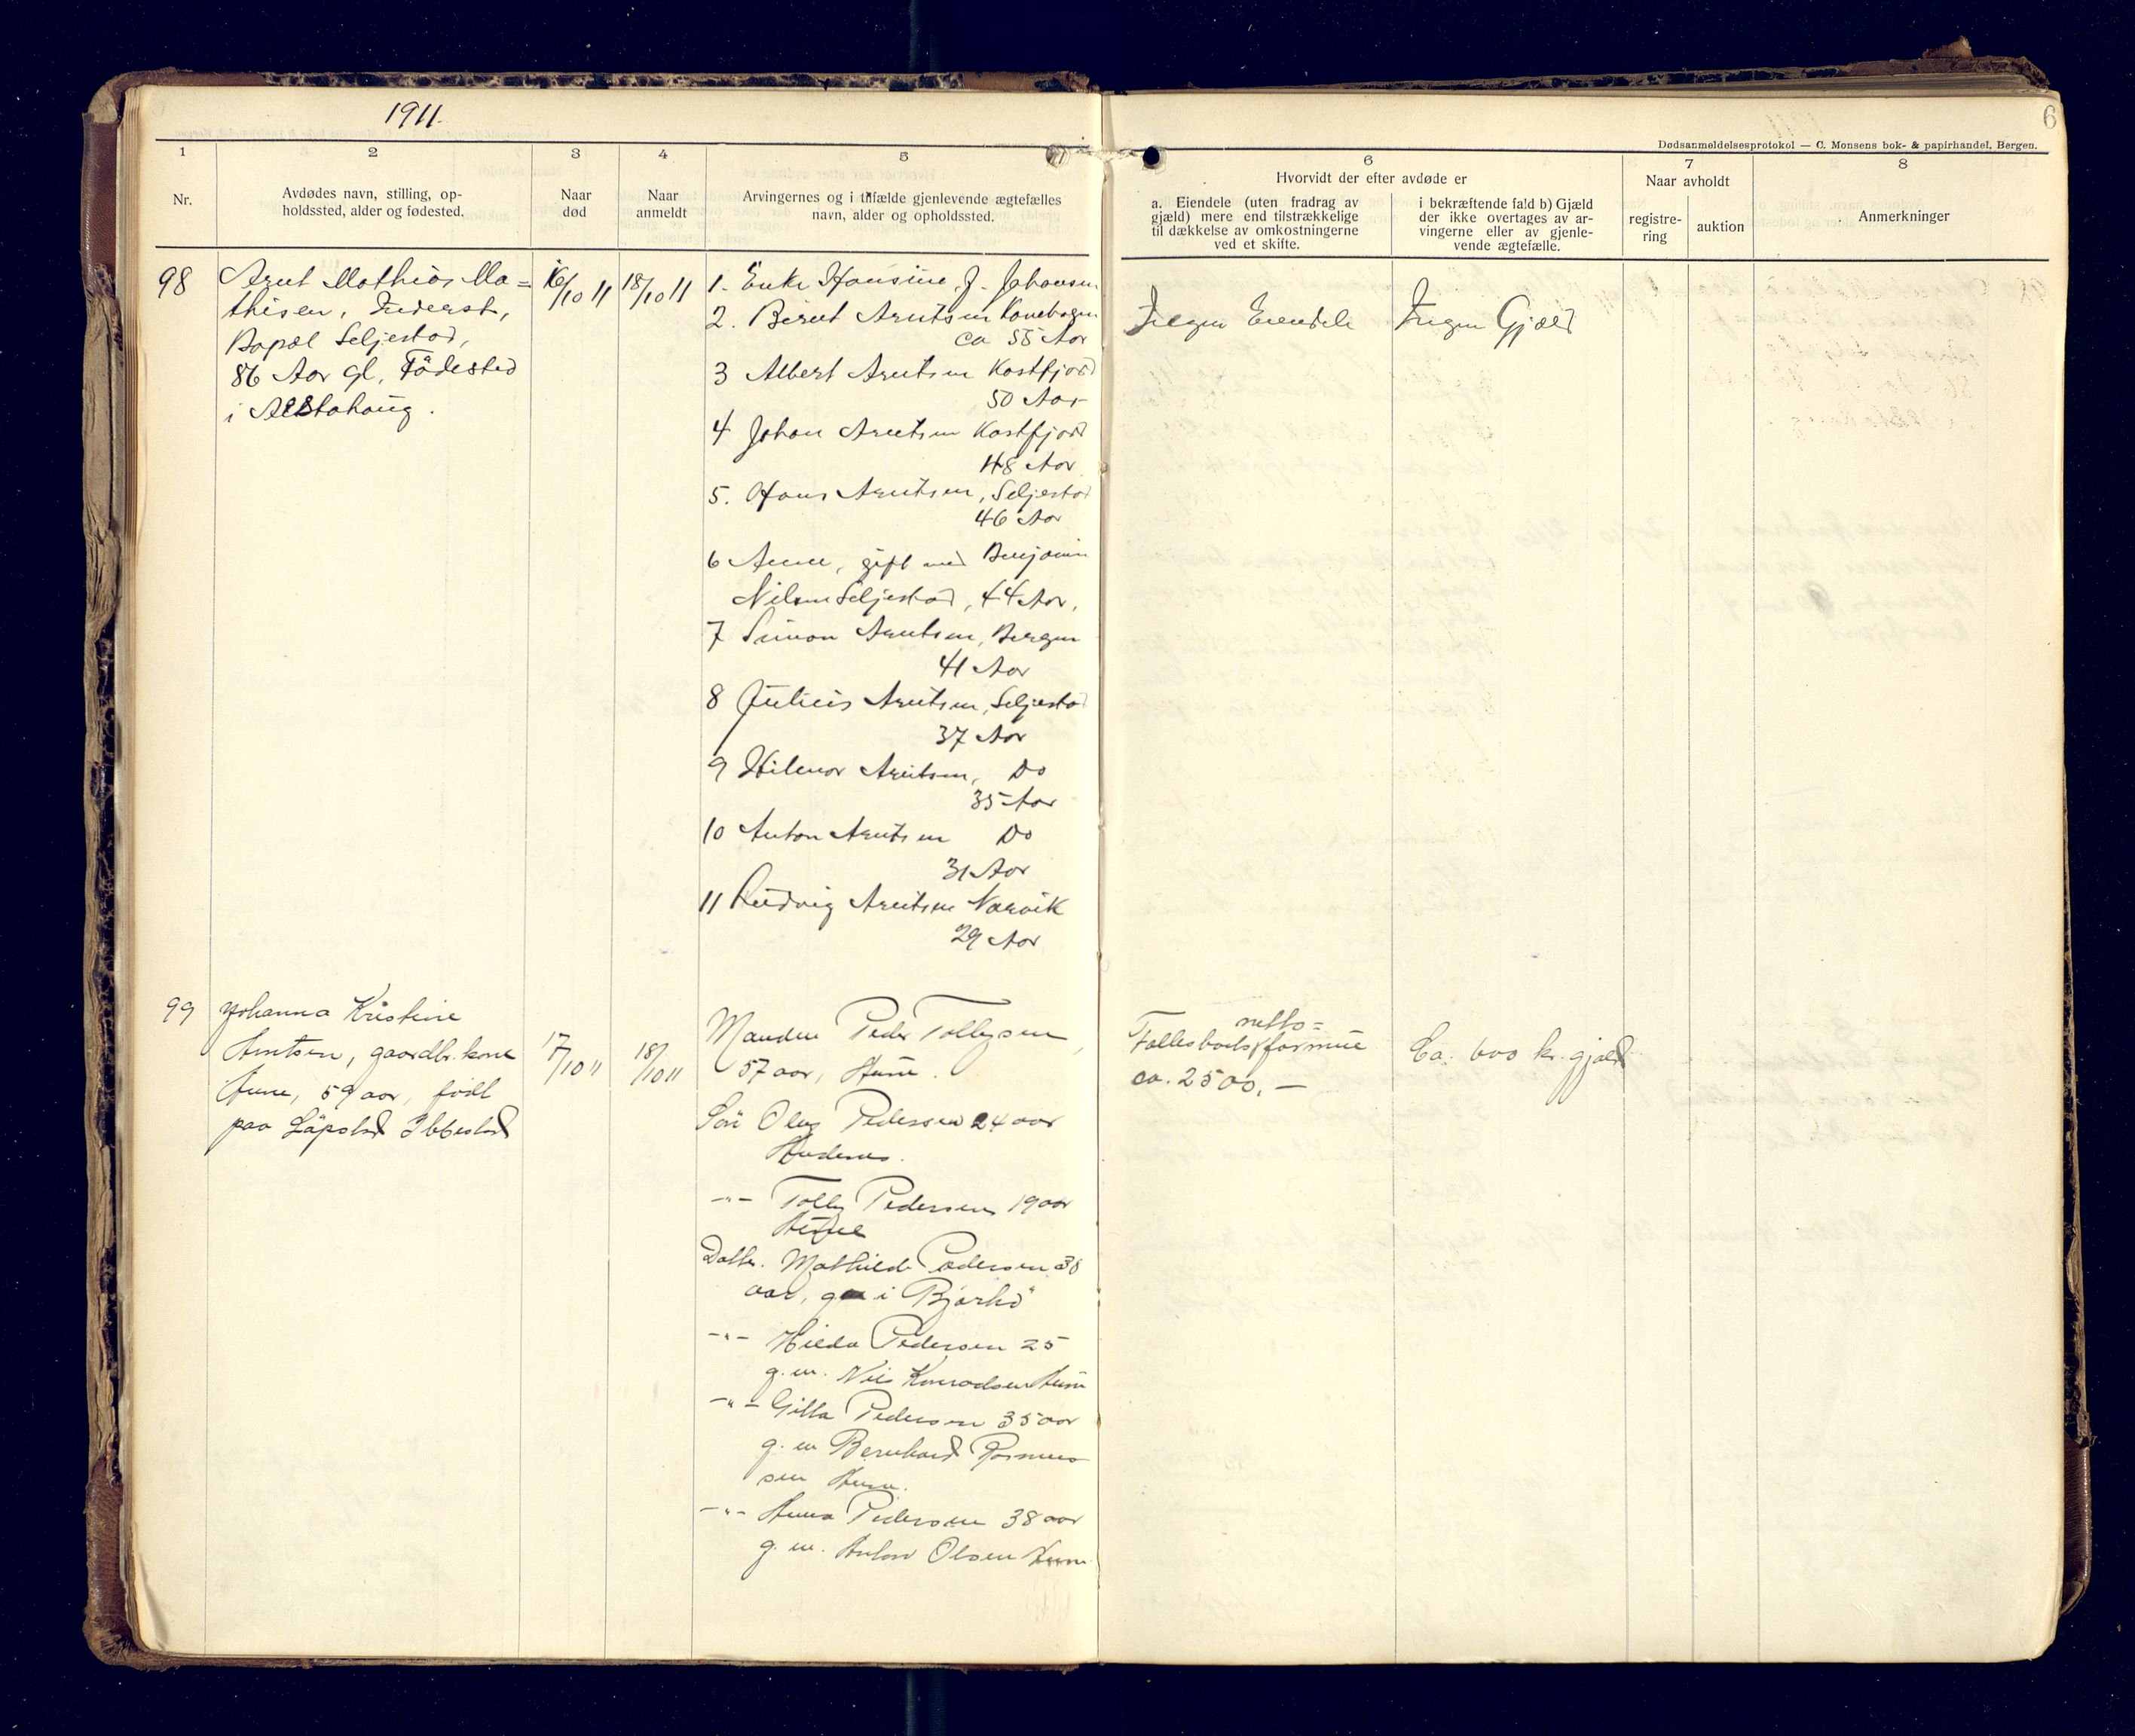 1911.
6
Dødsanmeldelsesprotokol — C. Monsens bok- & papirhandel, Bergen.
1
2
3
4
5
6
7
8
Nr.
Avdødes navn, stilling, op-
holdssted, alder og fødested.
Naar
død
Naar
anmeldt
Arvingernes og i tilfælde gjenlevende ægtefælles
navn, alder og opholdssted.
Hvorvidt der efter avdøde er
a. Eiendele (uten fradrag av
gjæld) mere end tilstrækkelige
til dækkelse av omkostningerne
ved et skifte.
i bekræftende fald b) Gjæld
der ikke overtages av ar-
vingerne eller av gjenle-
vende ægtefælle.
Naar avholdt
registre-
ring
auktion
Anmerkninger
98
Arnt Mathias Ma=
thisen, Inderst,
Seljestad,
86 Aar gl, Födested
i Alstahoug.
16/10 11
18/10 11
1. Enke Hansine J. Johansen
2. Bernt Arntsen Kanebogen
ca 55 Aar
3 Albert Arntsen Kastfjord
50 Aar
4 Johan Arntsen Kastfjord
48 Aar
5. Hans Arntsen, Seljestad
46 Aar
6 Anne, gift med Benjamin
Nilsen Seljestad, 44 Aar,
7 Simon Arntsen, Bergen
41 Aar
8 Julius Arntsen, Seljestad
37 Aar
9 Hilmar Arntsen, Do
35 Aar
10 Anton Arntsen Do
31 Aar
11 Ludvig Arntsen Narvik
29 Aar
Ingen Eiendele
Ingen Gjæld
99
Johanna Kristine
Arntsen, gaardbr. kone
Aune, 59 aar, født
paa Löpstad Ibbestad
17/10 11
18/10 11
Manden Peder Tollefsen,
57 aar, Aune.
Sön Olaf Pedersen 24 aar
Andenes.
-"- Tollef Pedersen 19 aar
Aune
Datter. Mathilde Pedersen 38
aar, g i Bjarkö
-"- Hilda Pedersen 25
g. m. Nils Konradsen Aune
-"- Gitta Pedersen 35 aar
g. m Bernhard Rasmus
sen Aune.
-"- Anna Pedersen 38 aar
g. m. Anton Olsen Aune
netto=
Fællesbodsformue
ca. 2500,—
Ca. 600 kr. gjæld